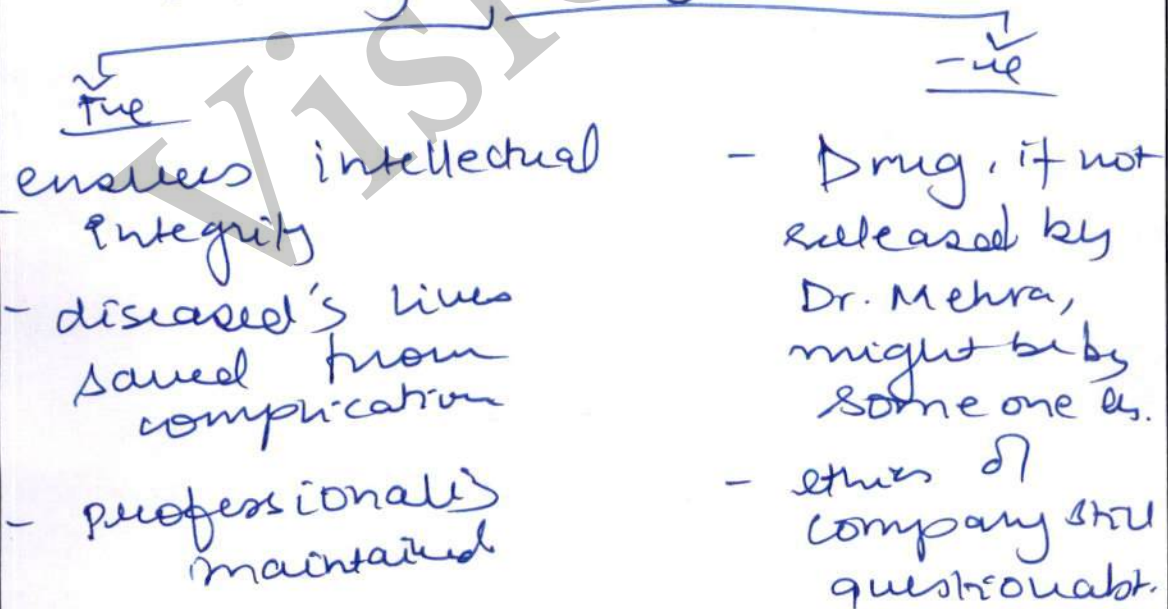 +ve
- ensures intellectual
integrity
- diseased's lives
saved from
complication
- professionalis
maintained
-ve
- Drug, if not
released by
Dr. Mehra,
might be by
some one els.
- ethics of
company still
questionabl.
Visi